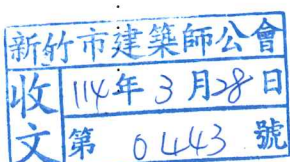 新竹市建築師公會
收文
114年3月28日
第 0443 號